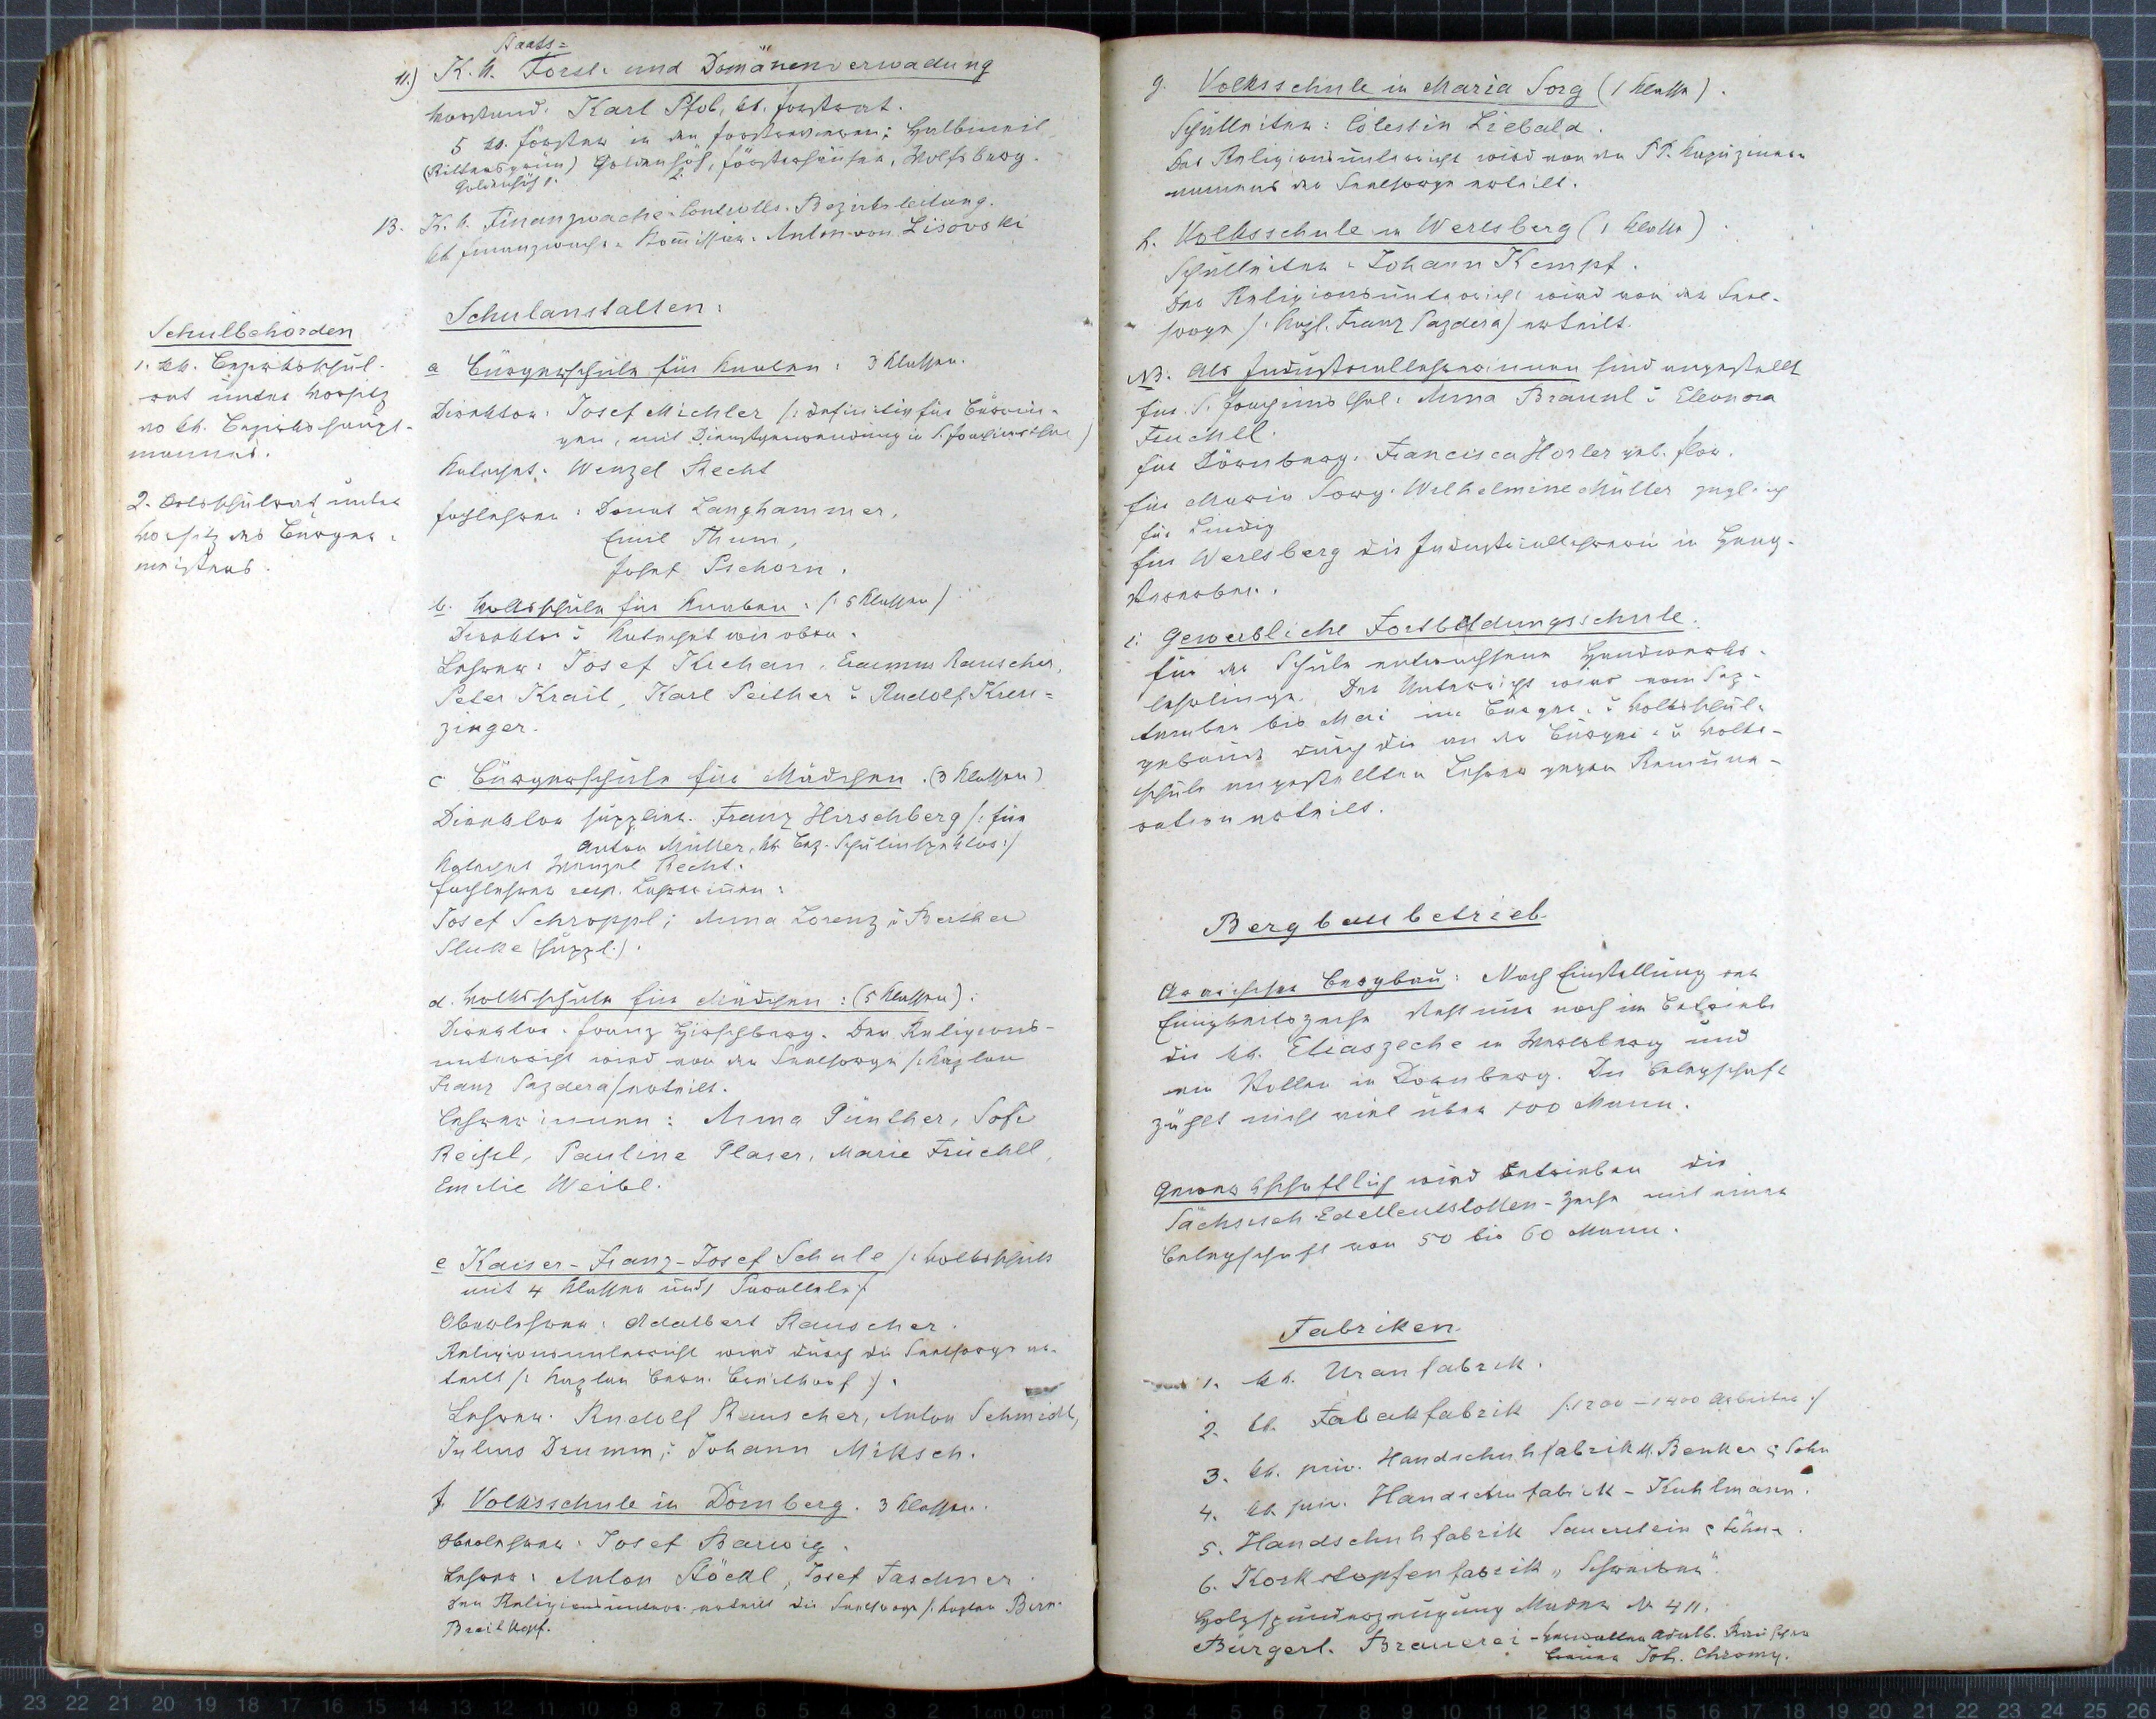 Staats=
11.) K. k. Forst- und Domänenverwadung
Vorstand: Karl Pfob, kk. Forstrat.
5 kk. Förster in den Forstrevieren: Halbmeil
(Rittersgrün) Goldenhöh, Försterhäuser, Wolfsberg.
Goldenhöh 1. 2.
13. K. k. Finanzwache-Controlls-Bezirksleitung.
kk Finanzwach-Kommissär. Anton von Lisovski
Schulbehörden
1. kk. Bezirksschul-
rat unter Vorsitz
kk. Bezirkshaupt-
mannes.
2. Ortsschulrat unter
Vorsitz des Bürger-
meisters.
Schulanstalten:
a Bürgerschule für Knaben: 3 Klassen.
Direktor: Josef Michler /: definitiv für Büroin-
gen, mit Dienstverwendung in S. Joachimsthal)
Katechet: Wenzel Recht
Fachlehrer: Donat Langhammer,
Emil Thum,
Josef Pschorn.
b. Volksschule für Knaben: /: 5 Klassen/
Direktor u Katechet wie oben.
Lehrer: Josef Kichan, Erasmus Rauscher,
Peter Krail, Karl Peither u Rudolf Kreu=
zinger.
c Bürgerschule für Mädchen. (3 Klassen)
Direktor supplier. Franz Hirschberg /: für
Anton Müller, kk Bez-Schulinspektor:/
Katechet Wenzel Recht.
Fachlehrer resp. Lehrerinnen:
Josef Schroppl; Anna Lorenz u Bertha
Sluke (suppl.).
d. Volksschule für Mädchen: (5 Klassen):
Direktor: Franz Hirschberg. Der Religions-
unterricht wird von der Seelsorge /: Kaplan
Franz Pazdera/ erteilt.
Lehrerinnen: Anna Günther, Sofie
Reissl, Pauline Plaser, Marie Früchtl,
Emilie Weibl.
e Kaiser-Franz-Josef Schule /: Volksschule
mit 4 Klassen und 1 Parallele:/
Oberlehrer: Adalbert Rauscher.
Religionsunterricht wird durch die Seelsorge er-
teilt /: Kaplan Bern. Breitkopf /.
Lehrer: Rudolf Rauscher, Anton Schmidt,
Julius Drumm, u Johann Miksch.
f. Volksschule in Dörnberg. 3 Klassen.
Oberlehrer: Josef Barwig.
Lehrer: Anton Stöckl, Josef Taschner.
Den Religionsunterr. erteilt die Seelsorge /: Kaplan Bern.
Breitkopf.
g. Volksschule in Maria Sorg (1 Klasse).
Schulleiter: Cölestin Liebald.
Der Religionsunterricht wird von den PP. Kapuzinern
namens der Seelsorge erteilt.
h. Volksschule in Werlsberg (1 Klasse)
Schulleiter: Johann Kempf.
Der Religionsunterricht wird von der Seel-
sorge /: Kapl. Franz Pazdera/ erteilt.
NB. Als Industriallehrerinnen sind angestellt
für S. Joachimsthal: Anna Braunl u Eleonora
Fruchtl.
für Dörnberg: Francisca Horler geb. Flor.
für Maria Sorg: Wilhelmine Müller zugleich
für Lindig
für Werlsberg die Industriallehrerin in Heng-
stererben.
i. Gewerbliche Fortbildungsschule.
für der Schule entwachsene Handwerks-
lehrlinge. Der Unterricht wird vom Sep-
tember bis Mai im Bürger- u Volksschul-
gebäude durch die an der Bürger- u Volks-
schule angestellten Lehrer gegen Remune-
ration erteilt.
Bergbaubetrieb.
Ärarischer Bergbau: Nach Einstellung der
Einigkeitszeche steht nur noch im Betriebe
die kk. Eliaszeche in Werlsberg und
ein Stollen in Dörnberg. Die Belegschaft
zählt nicht viel über 100 Mann.
Gewerkschaftlich wird betrieben die
Sächsisch-Edelleutstollen-Zeche mit einer
Belegschaft von 50 bis 60 Mann.
Fabriken.
1. kk. Uranfabrik.
2. kk. Tabakfabrik /: 1200-1400 Arbeiter:/
3. kk. priv. Handschuhfabrik M. Benker & Sohn
4. kk priv. Handschufabrik - Kuhlmann.
5. Handschuhfabrik Sauerstein & Söhne.
6. Korkstopfenfabrik „Schreiber".
Holzspundezeugung Mader N 411.
Bürgerl. Brauerei - Verwalter Adalb. Rauscher
Brauer Joh. Chromy.